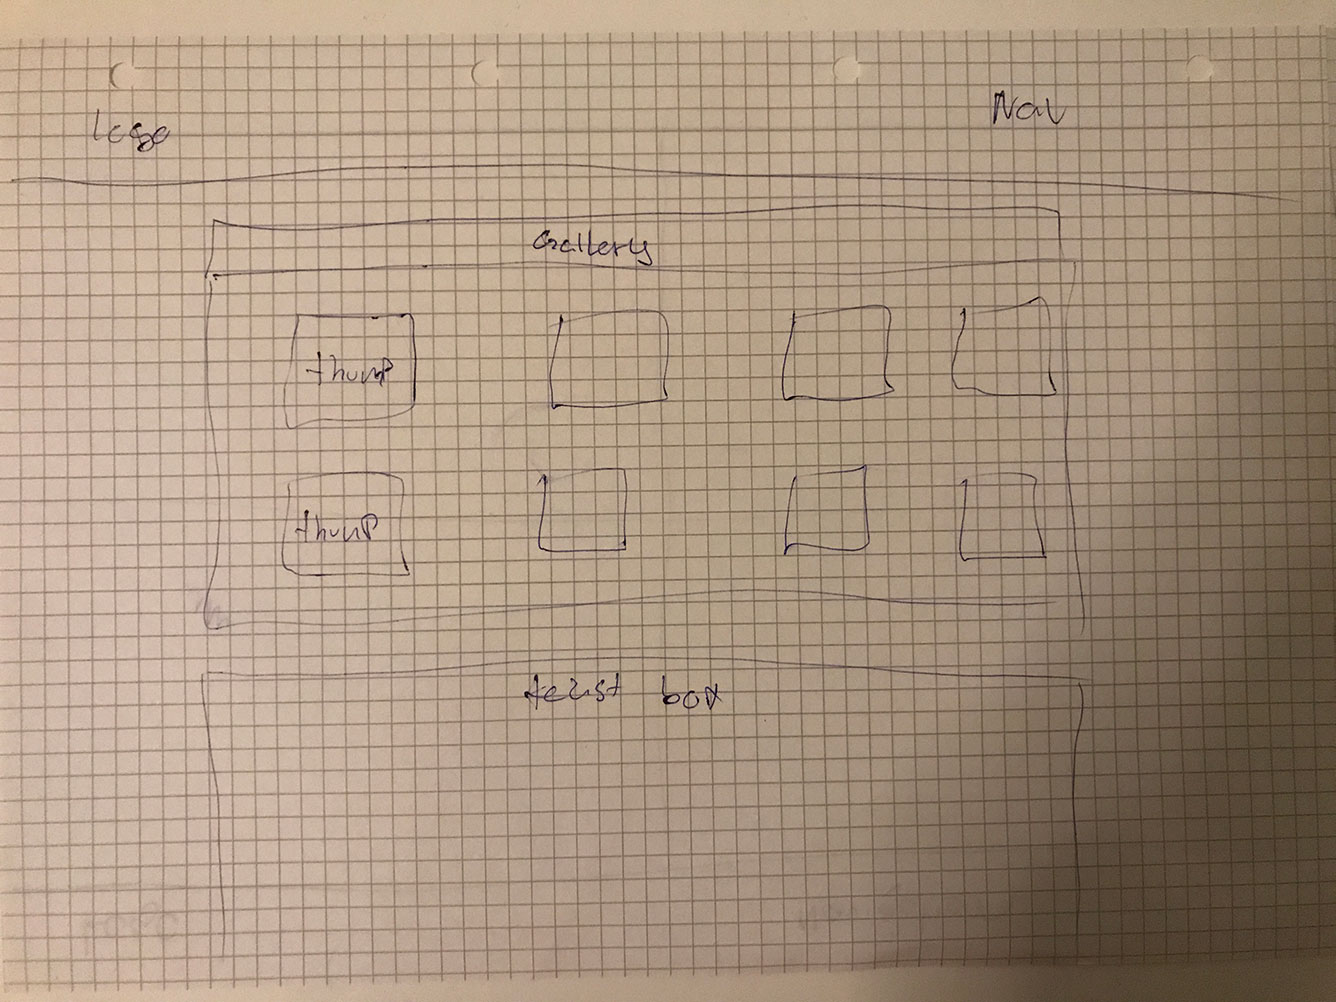 Logo
Nav
Gallery
thump
thump
box